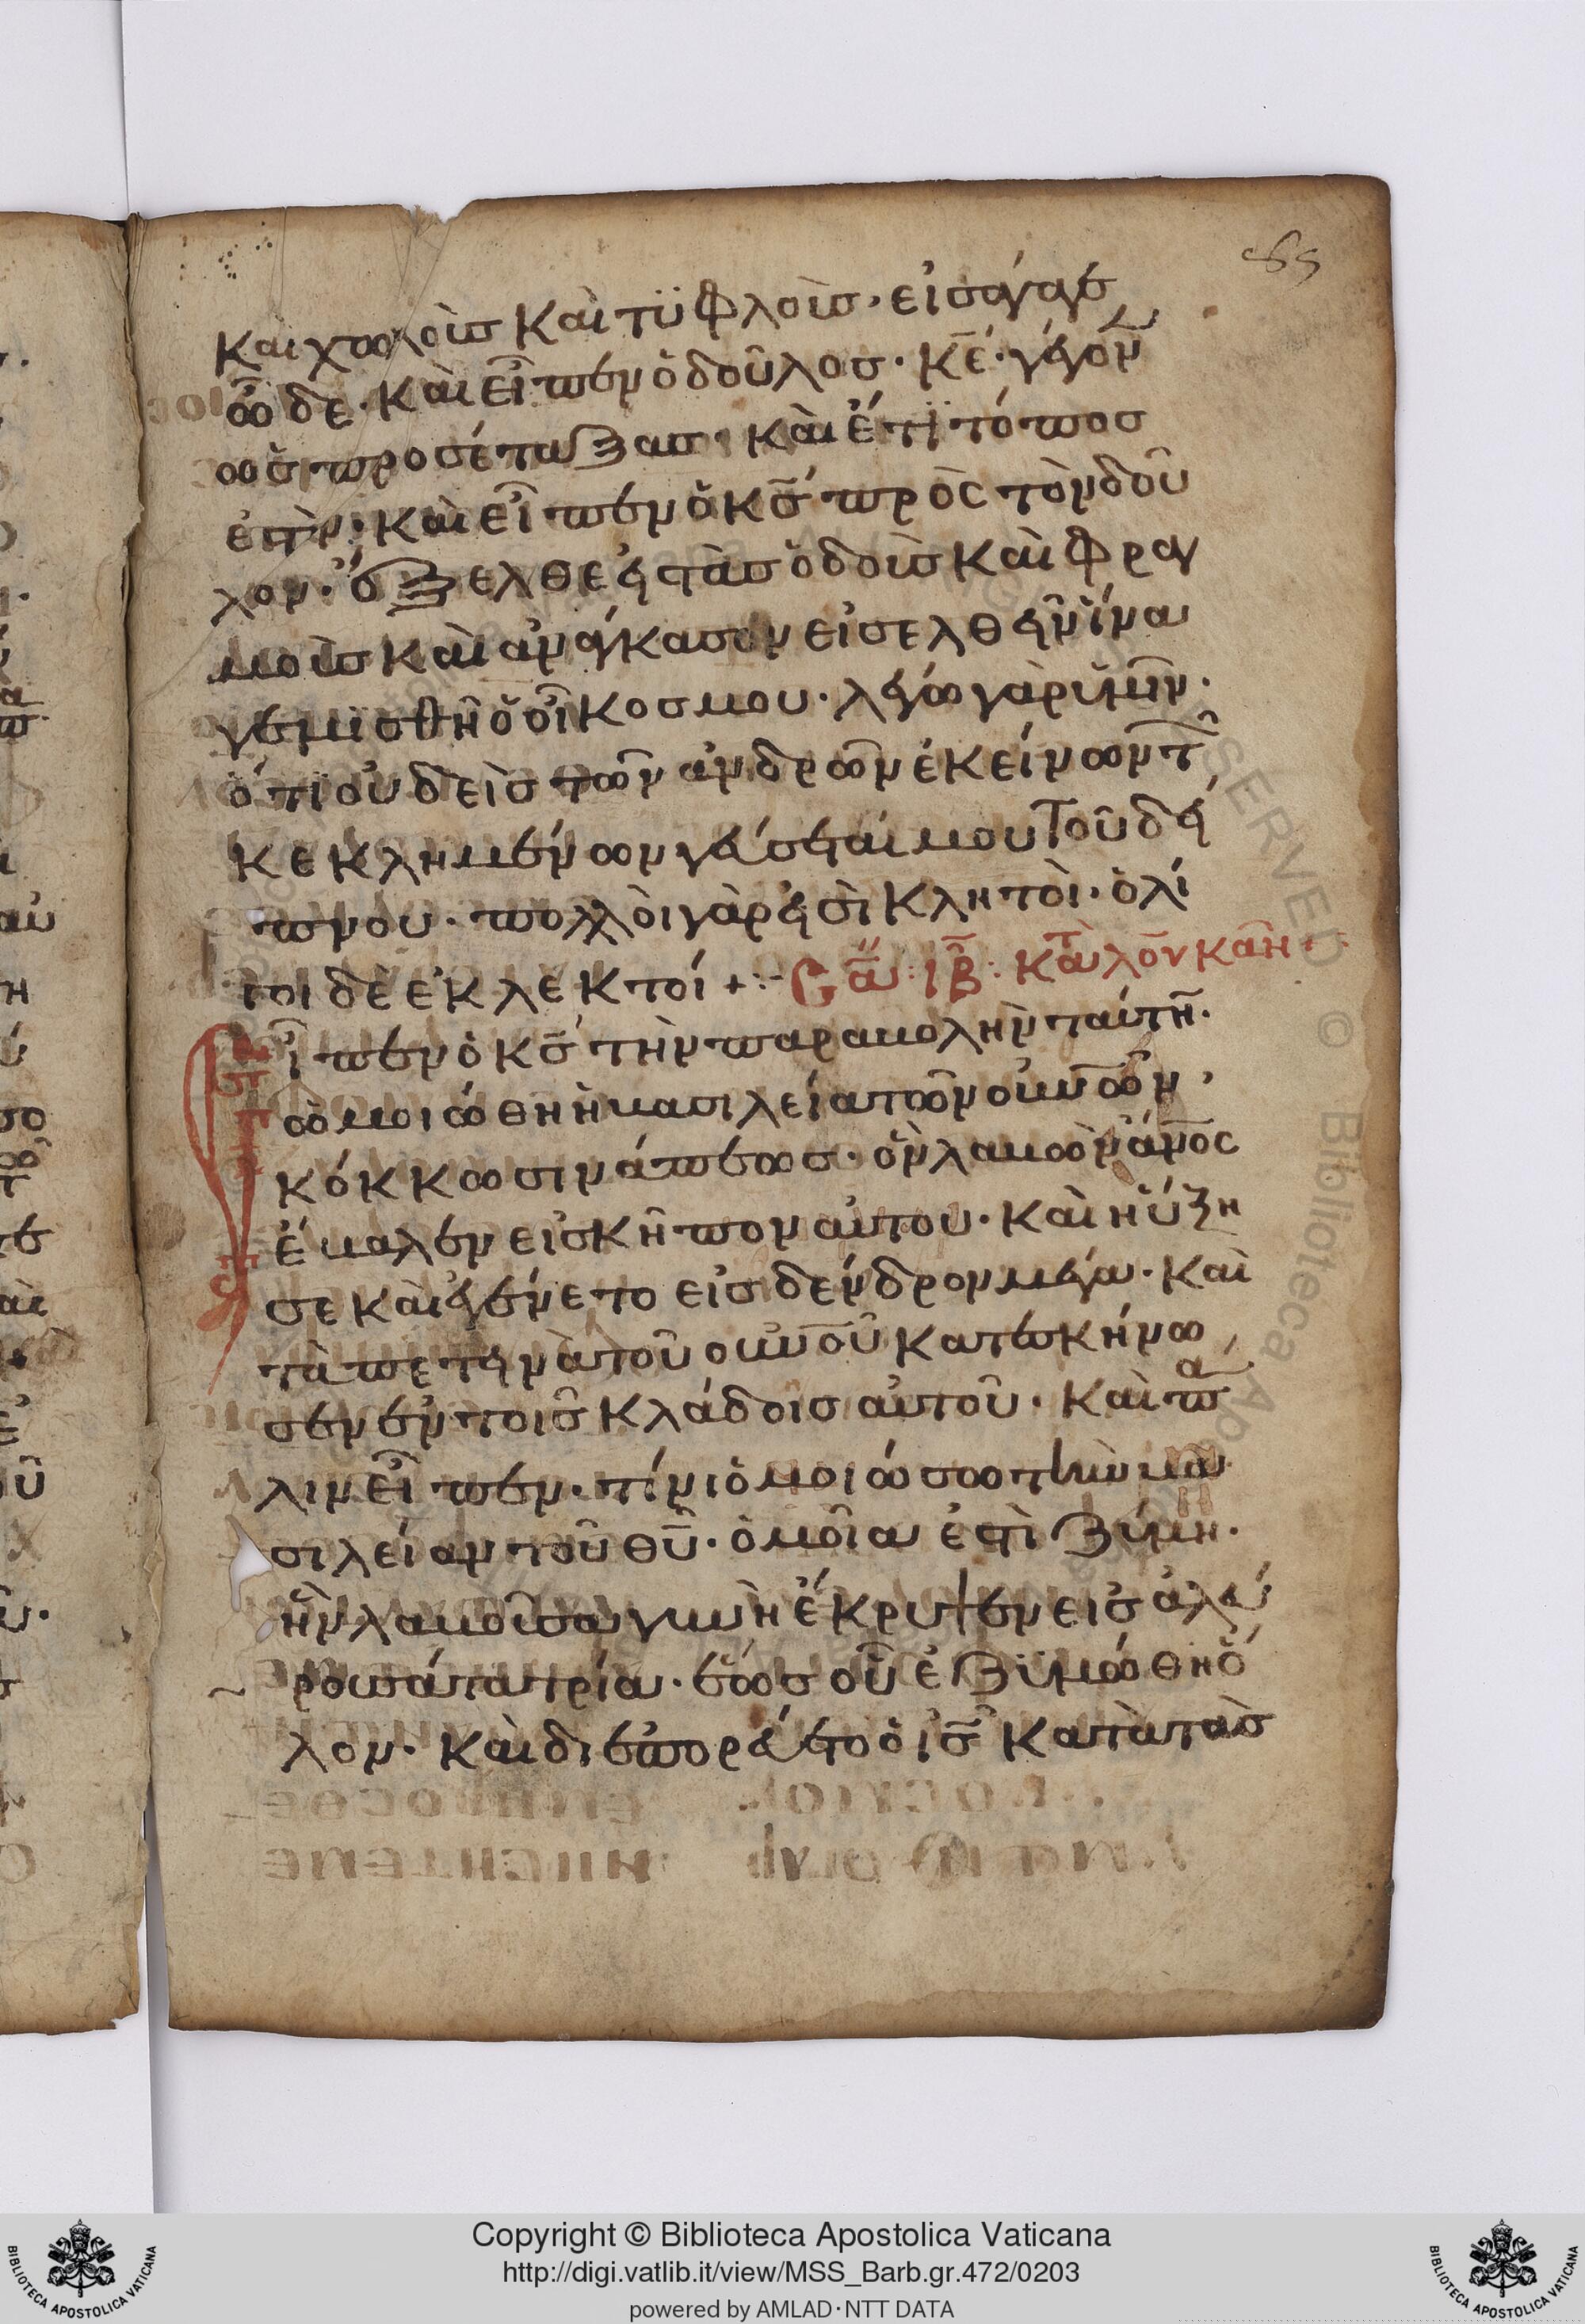 και χωλοὺσ καὶ τϋφλοὺσ· εἰσάγαγε
ὧδε· καὶ εἶπεν ὁ δοῦλοσ· κ̅ε̅· γέγον
ωσ προσέταξασ· καὶ ἔτϊ τόποσ
ἐστὶν· καὶ εἶπεν ὁ κ̅σ̅ πρὸς τὸν δοῦ
λον· ἔξελθε εἰς τὰσ ὁδοὺσ καὶ φραγ
μοὺσ καὶ ἀνάγκασον εἰσελθεῖν ἵνα
γεμισθῆ ὁ οἶκοσ μου· λέγω γὰρ ὑμῖν·
ὅτϊ οὐδεὶσ τῶν ἀνδρῶν ἐκείνων τ
κεκλημένων γεύσεταί μου τοῦ δεί
πνου· πολλὸι γὰρ εἰσὶ κλητοὶ· ὀλί
γοι δὲ ἐκλεκτοί +:-
σα: ιβ: κατ λουκαν
εἶπεν ὁ κ̅σ̅ τὴν παραβολὴν ταύτη̅·
ὡμοιώθη ἡ βασιλεία τῶν οὐν̅ῶν,
κόκκω σινάπεωσ· ὃν λαβὼν ἄν̅οσ
ἔβαλεν εἰσ κῆπον αὐτου· καὶ ηὔξη
σε καὶ ἐγένετο εἰσ δένδρον μέγα· καὶ
τὰ πετεινὰ τοῦ οὐν̅οῦ κατεσκήνω
σεν ἐν τοισ κλάδοισ αὐτοῦ· καὶ πα
λιν εἶπεν· τίνι ὁμοιώσω τὴν βα
σιλείαν τοῦ θ̅υ̅· ὁμοῖα ἐστὶ ζύμη·
ἣν λαβοῦσα γυνὴ ἔκρυψεν εἰσ ἀλεύ
ρου σάτα τρία· ἕωσ οὗ ἐζϋμώθη ὅ
λον· καὶ διεπορεύετο ὁ ι̅σ̅ κατὰ τὰσ
Copyright © Biblioteca Apostolica Vaticana
http://digi.vatlib.it/view/MSS_Barb.gr.472/0203
powered by AMLAD·NTT DATA
BIBLIOTECA APOSTOLICA VATICANA
BIBLIOTECA APOSTOLICA VATICANA